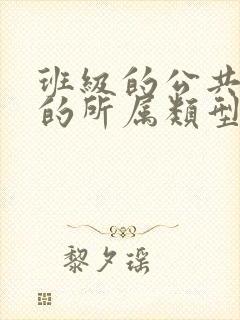 班級的公共
的所属類型
黎夕瑶